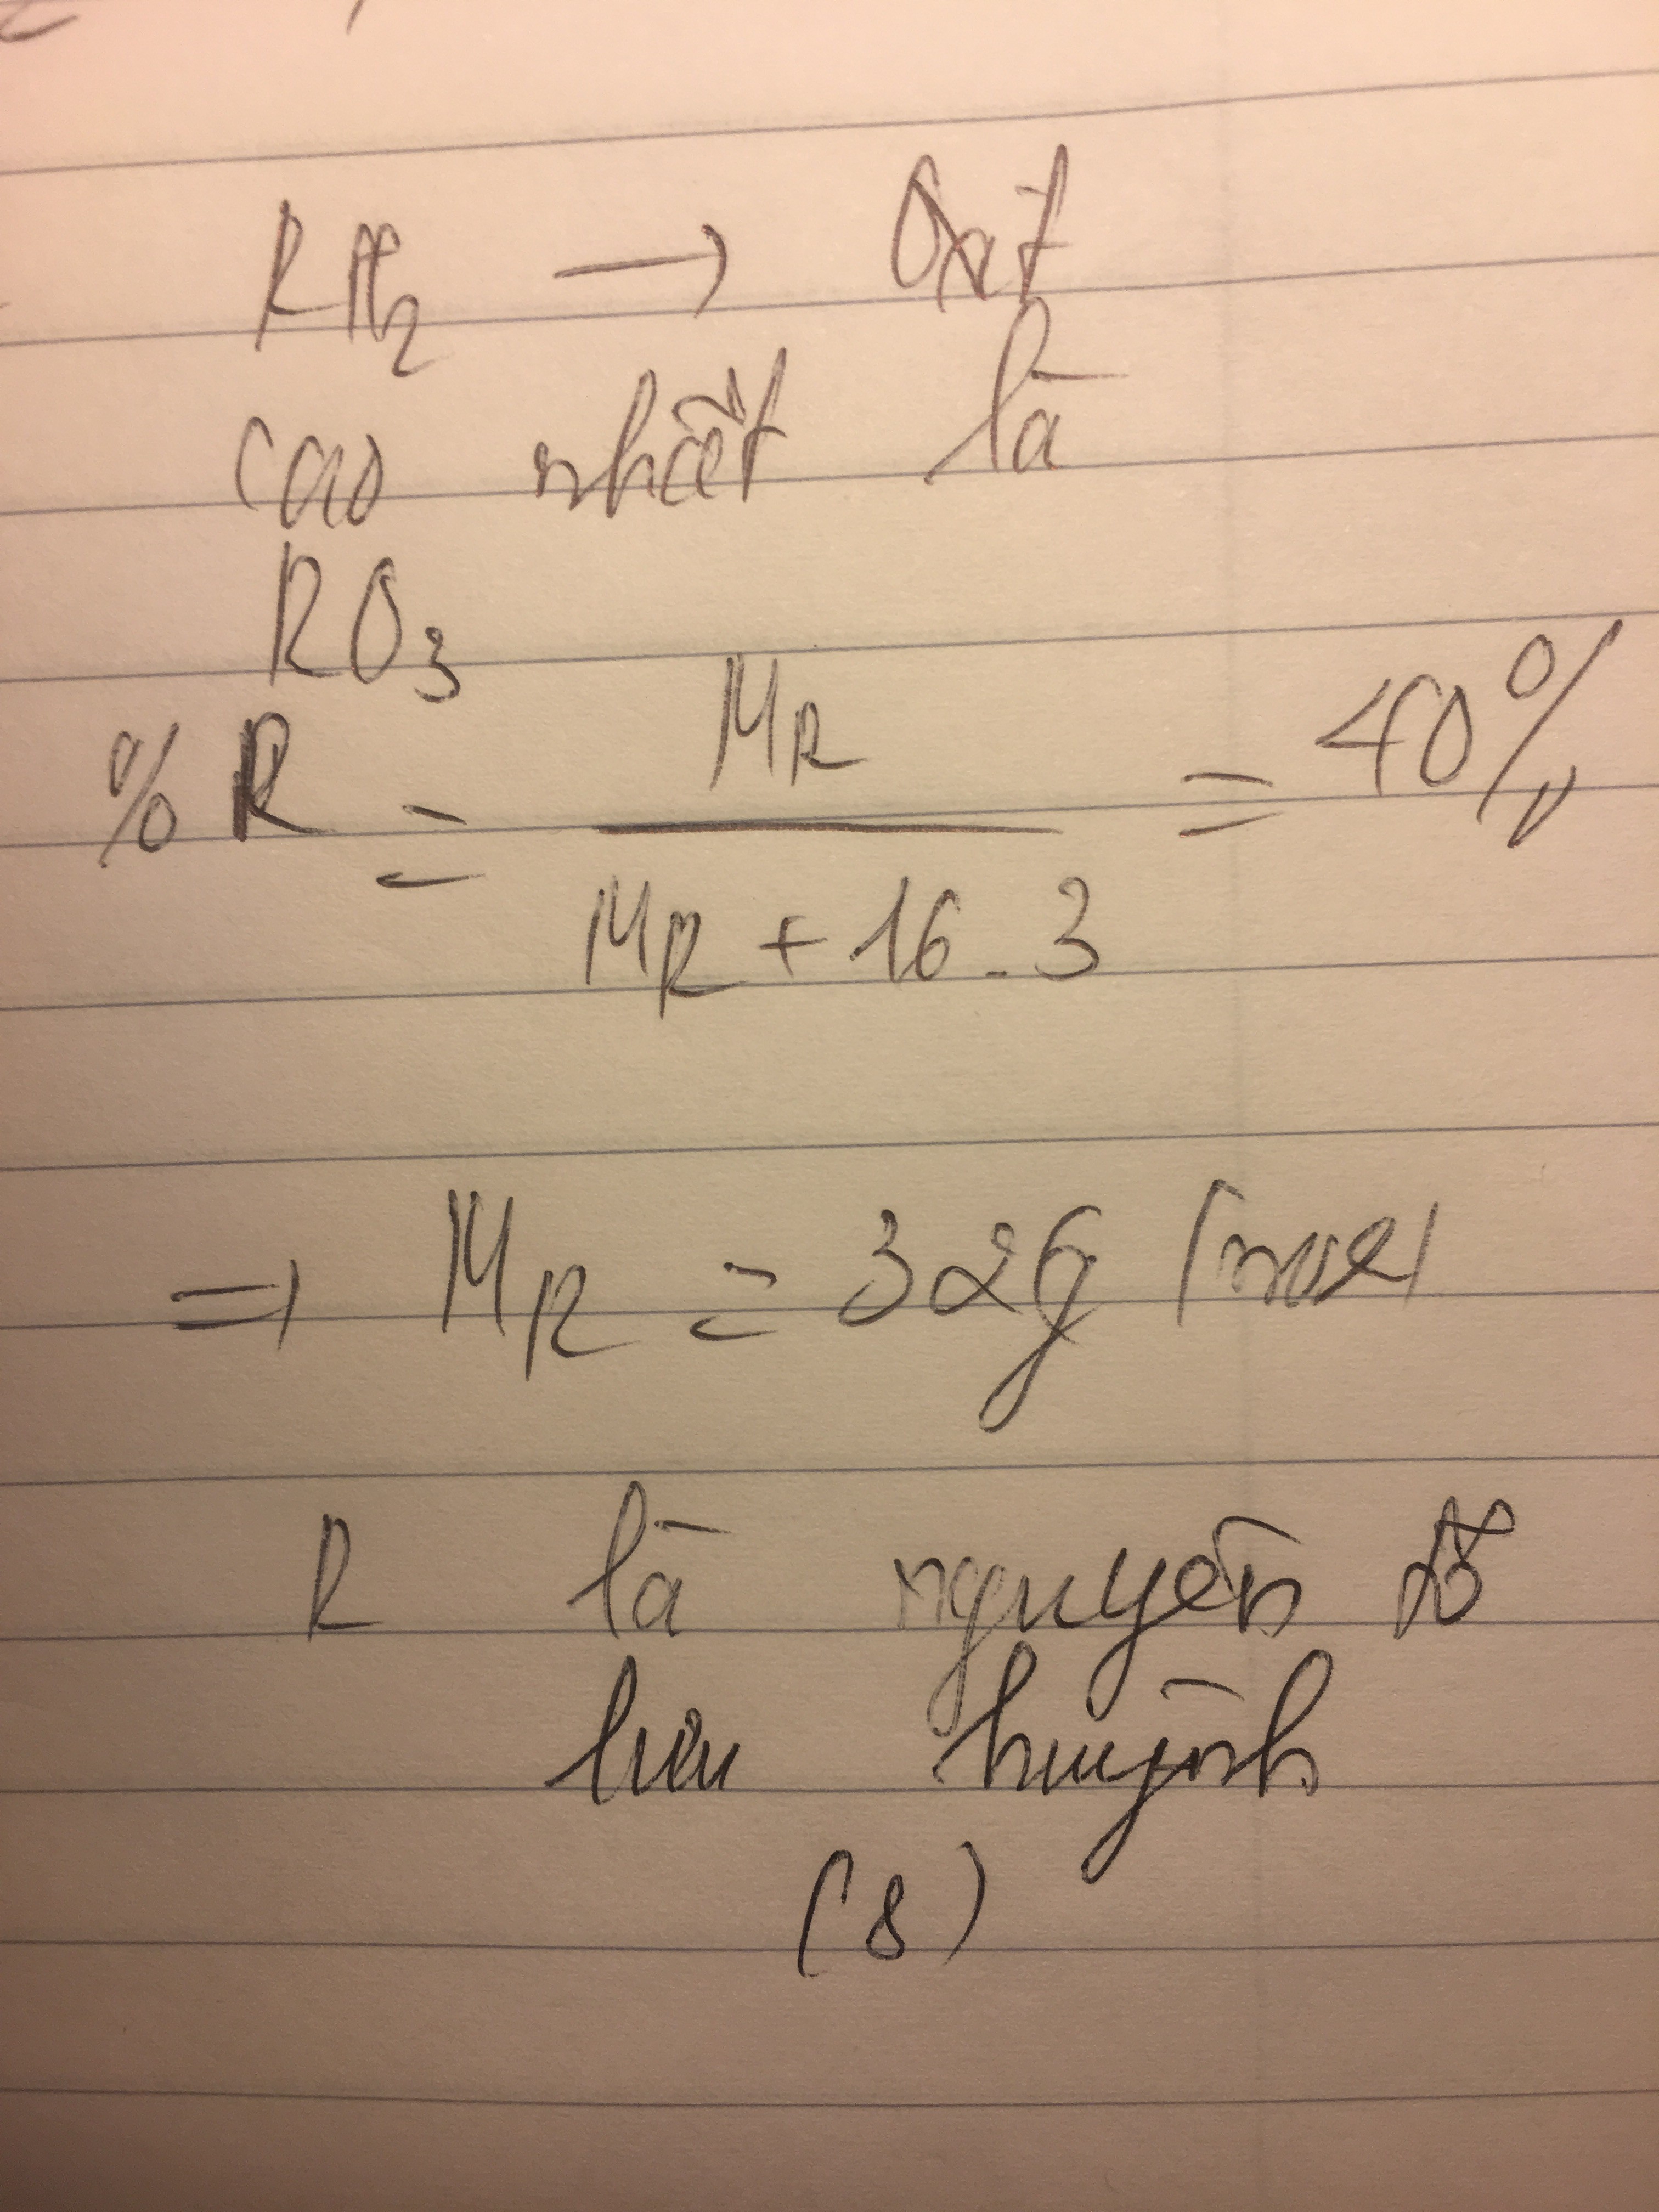 RH₂ → Oxit
cao nhất là
RO₃
% R = M_R / (M_R + 16.3) = 40%
=> M_R = 32g/mol
R là nguyên tố
lưu huỳnh
(S)